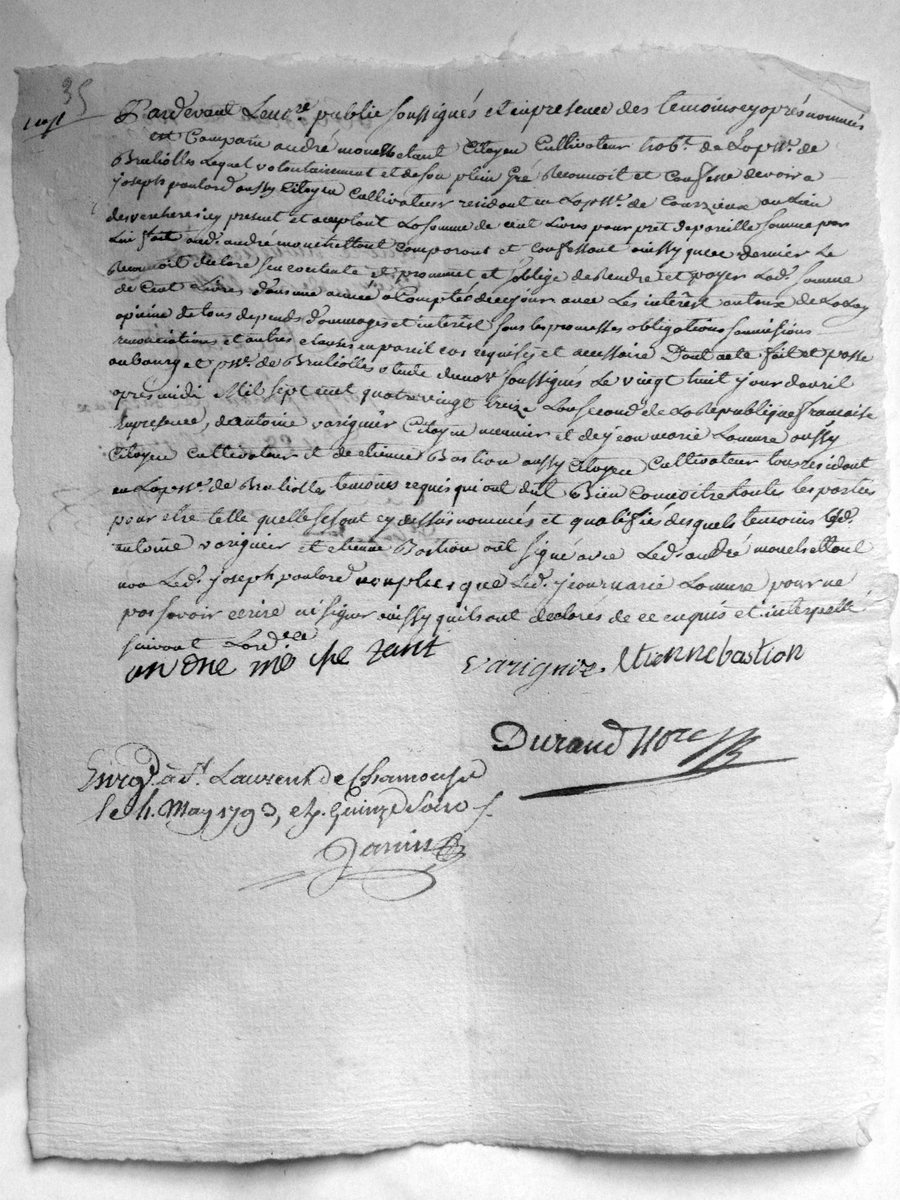 35
Pardevant Le no.re public soussignés et en presence des temoins cy après nommés
est Comparu andré mouchetant Citoyen Cultivateur hab.t de La p.sse de
Brulliolles Lequel volontairement et de son plein gré Reconnoit et Confesse devoir a
joseph poulard aussy Citoyen Cultivateur residant en La p.sse de Courzieux au Lieu
des vercheres icy present et acceptant La somme de cent Livres pour prêt de pareille somme par
Lui fait aud. andré mouchettant comparant et confessant aussy que ce dernier Le
Reconnoit declare s'en contente et promet et s'oblige de Rendre et payer Lad. somme
de Cent Livres dans une année a Compter de ce jour avec Les interêt au taux de La Loy
a peine de tous depends dommages et interêt sous les promesses obligations soumissions
renonciations et autres clauses en pareil cas requises et necessaire Dont acte fait et passé
au bourg et p.sse de Brulliolles etude du no.re soussignés Le vingt huit jour davril
après midi Mil sept cent quatre vingt treize L'an second de La Republique francaise
En presence, de antoine varignier Citoyen meunier et de jean marie Lamure aussy
Citoyen Cultivateur et de etienne Bastion aussy Citoyen Cultivateur tous residant
en La p.sse de Brulliolles temoins requis qui ont dit Bien Connoitre toutes les parties
pour etre telle quelles sont cy dessus nommés et qualifié desquels temoins Led.
antoine varignier et etienne Bastion ont signé avec Led. andré mouchettant
non Led. joseph poulard non plus que Led. jean marie Lamure pour ne
pas savoir ecrire ni signer aussy qu'ils ont declares de ce enquis et interpellé
suivant Lord.ce
an dre mou che tant varignier etienne bastion
Durand No.re
Enrg.é à S.t Laurent de Chamousset
le 4. May 1793, et p. Quinze Sols
Janin